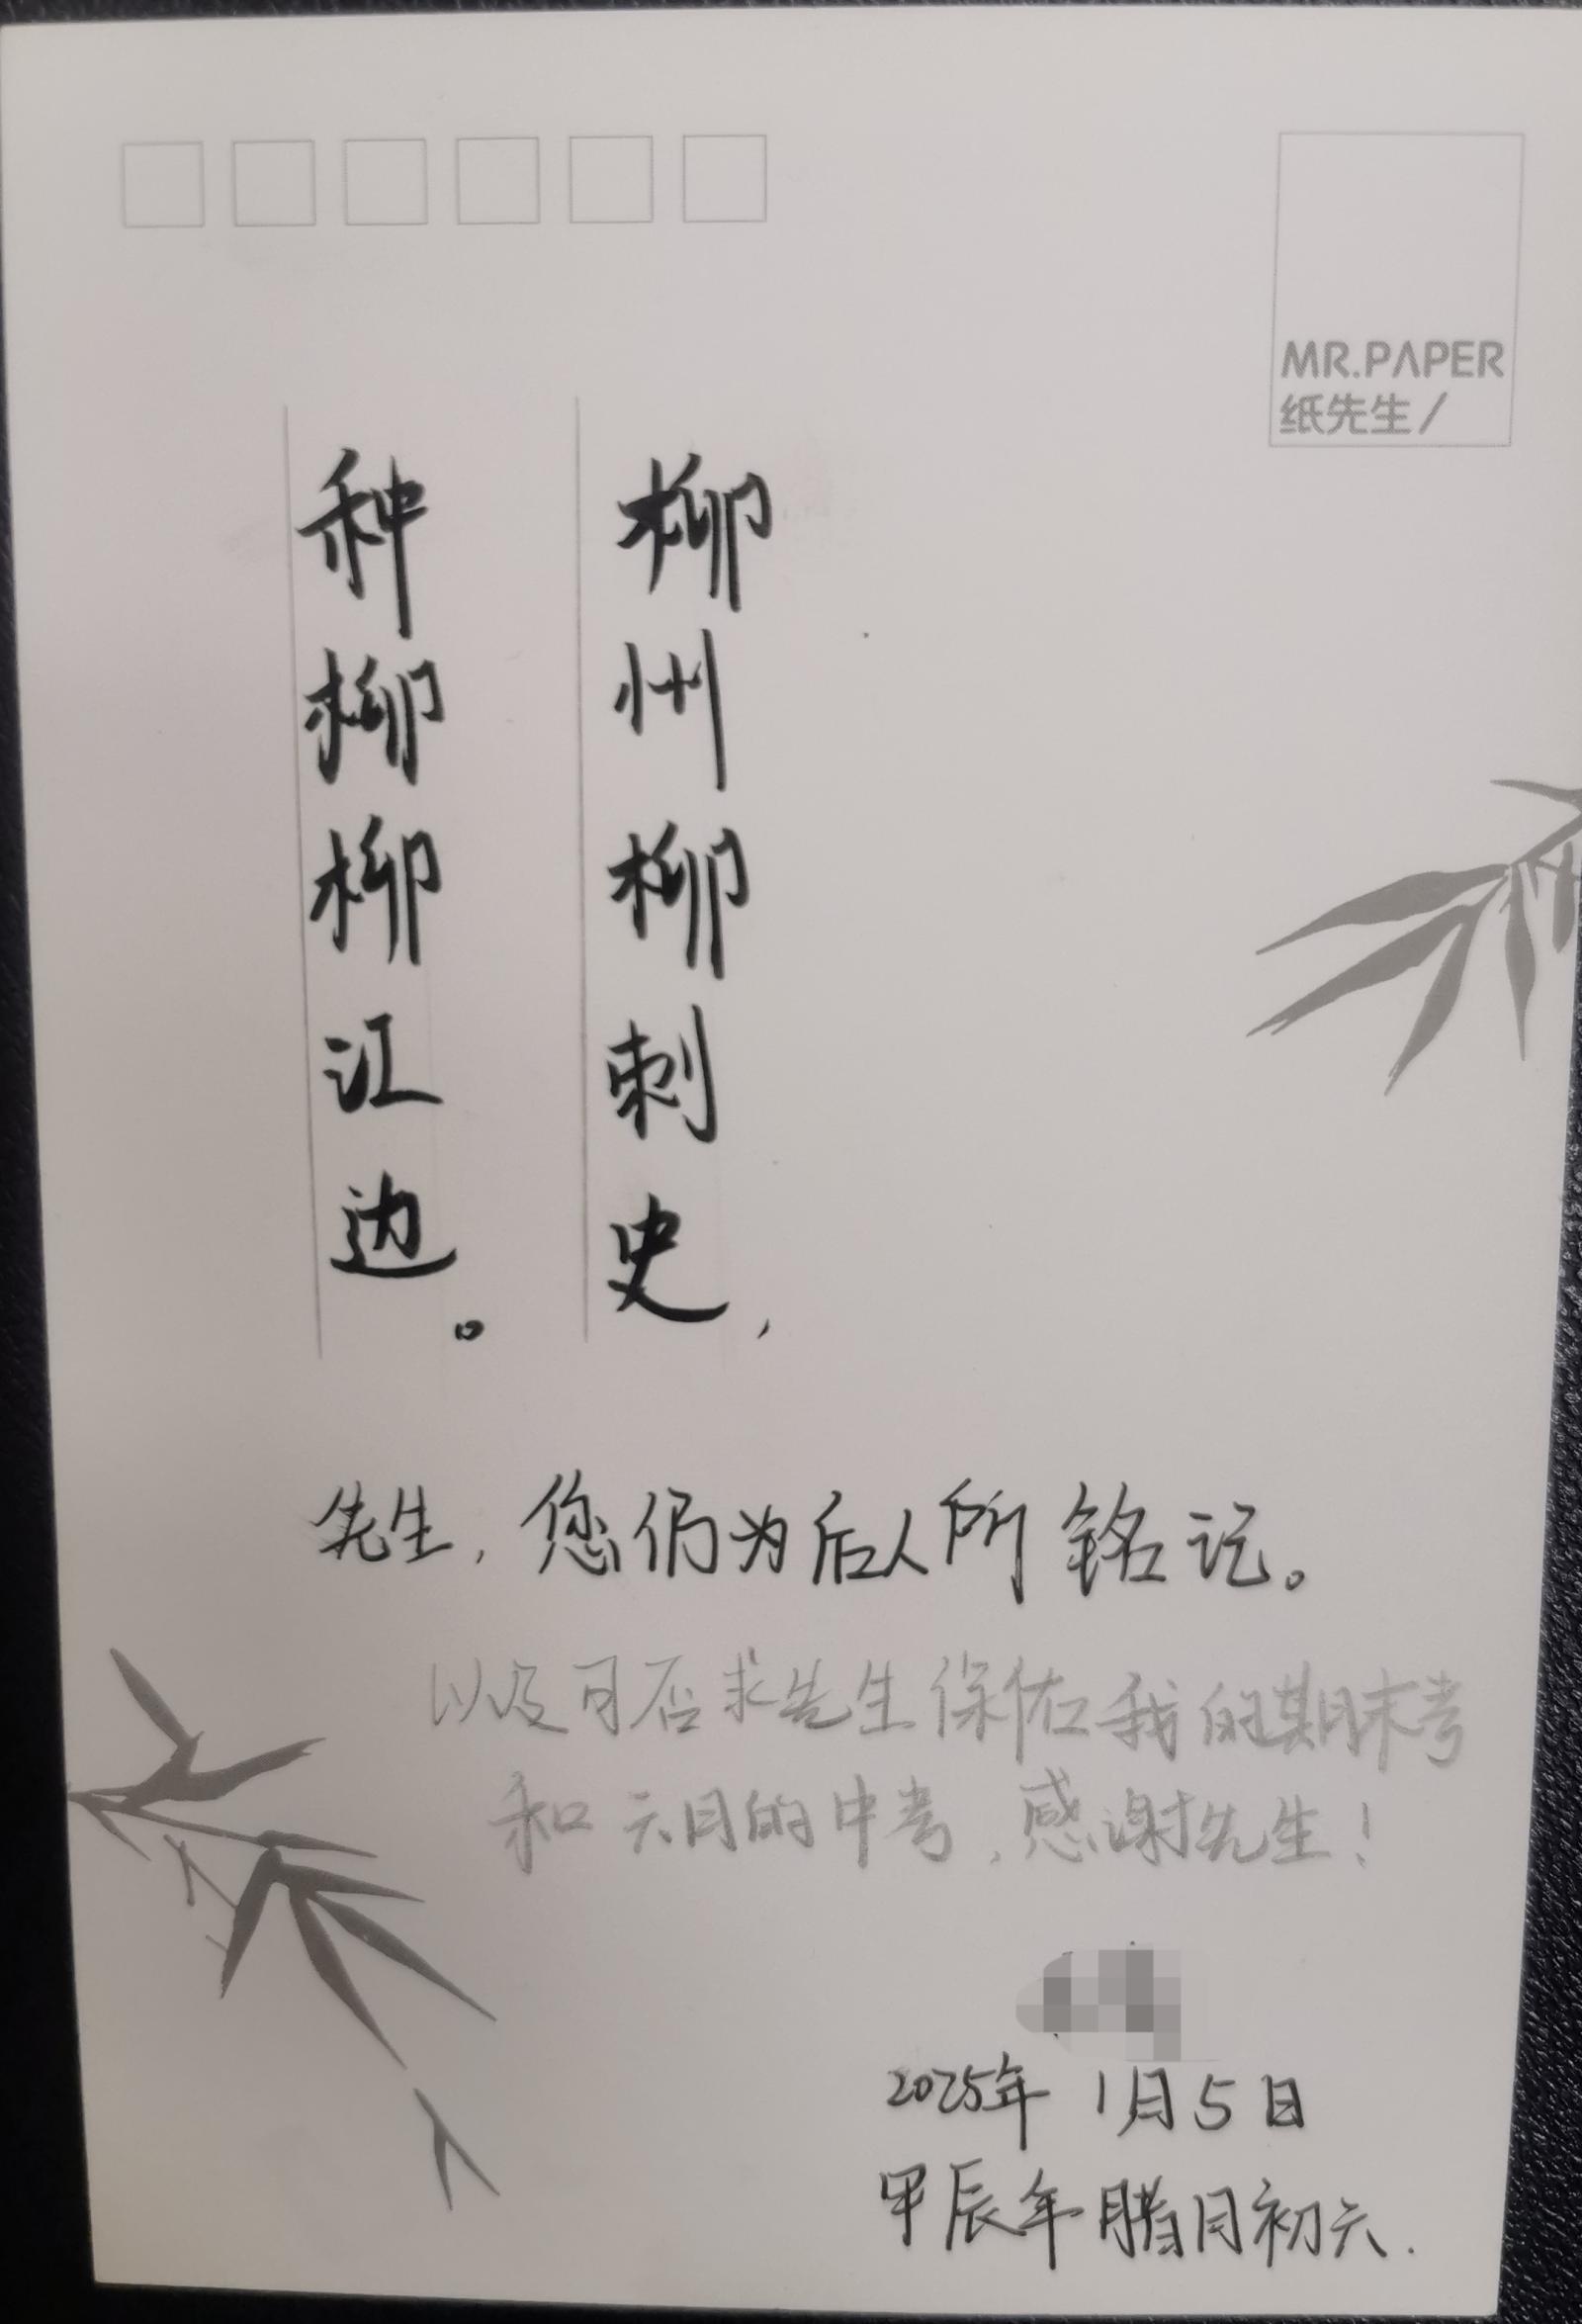 MR.PAPER
纸先生/
柳州柳刺史,
种柳柳江边。
先生,您仍为后人所铭记。
以及可否求先生保佑我的期末考
和六月的中考,感谢先生!
2025年 1月5日
甲辰年腊月初六.